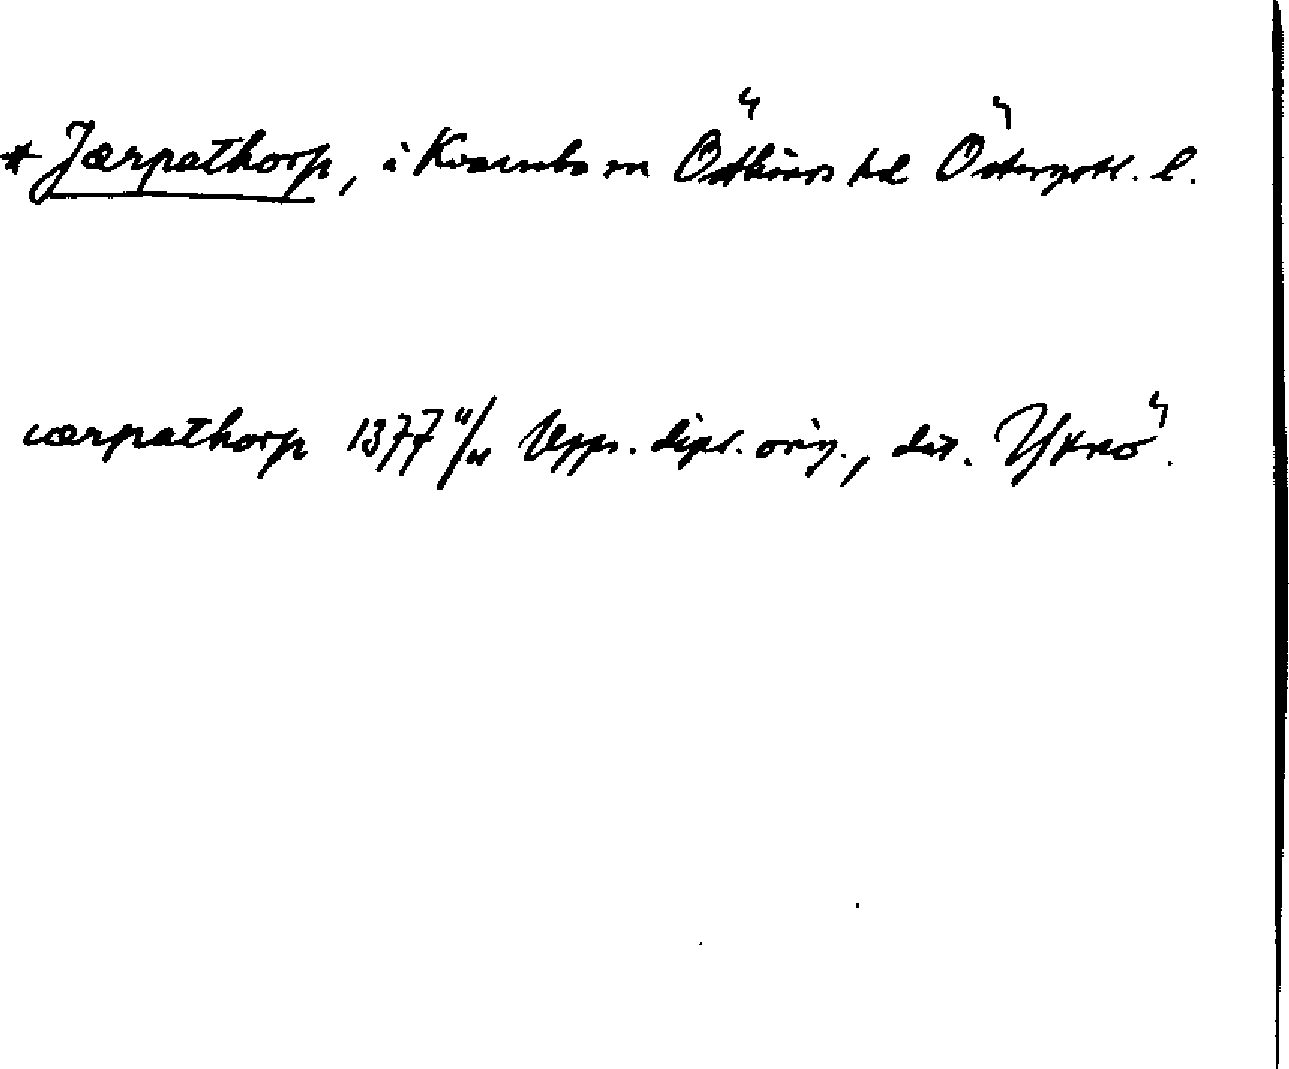 * Jærpathorp, i Kvarsebo sn Östkinds hd Östergötl. l.
iærpathorp 1377 11/11 Upps. dipl. orig., dat. Yxnö.